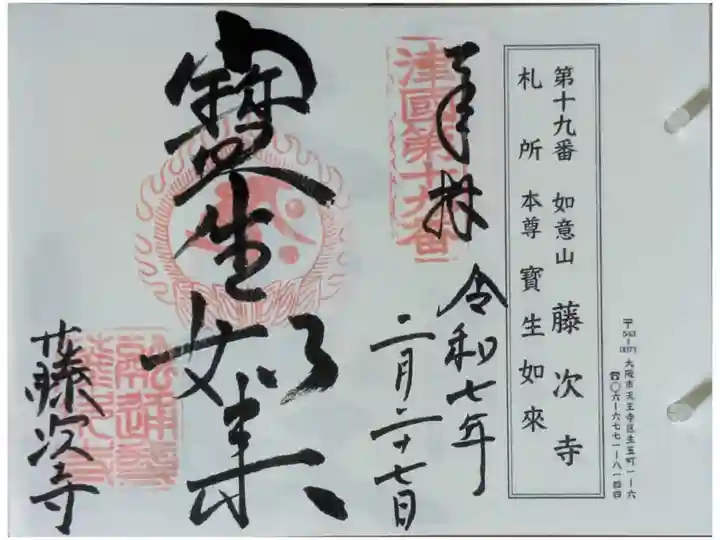 第十九番 如意山 藤次寺
札所 本尊 寶生如來
〒543-0071 大阪市天王寺区生玉町一-六
☎〇六-六七七一-八一四四
奉拝
津國第十九番
令和七年
二月二十七日
寶生如来
藤次寺